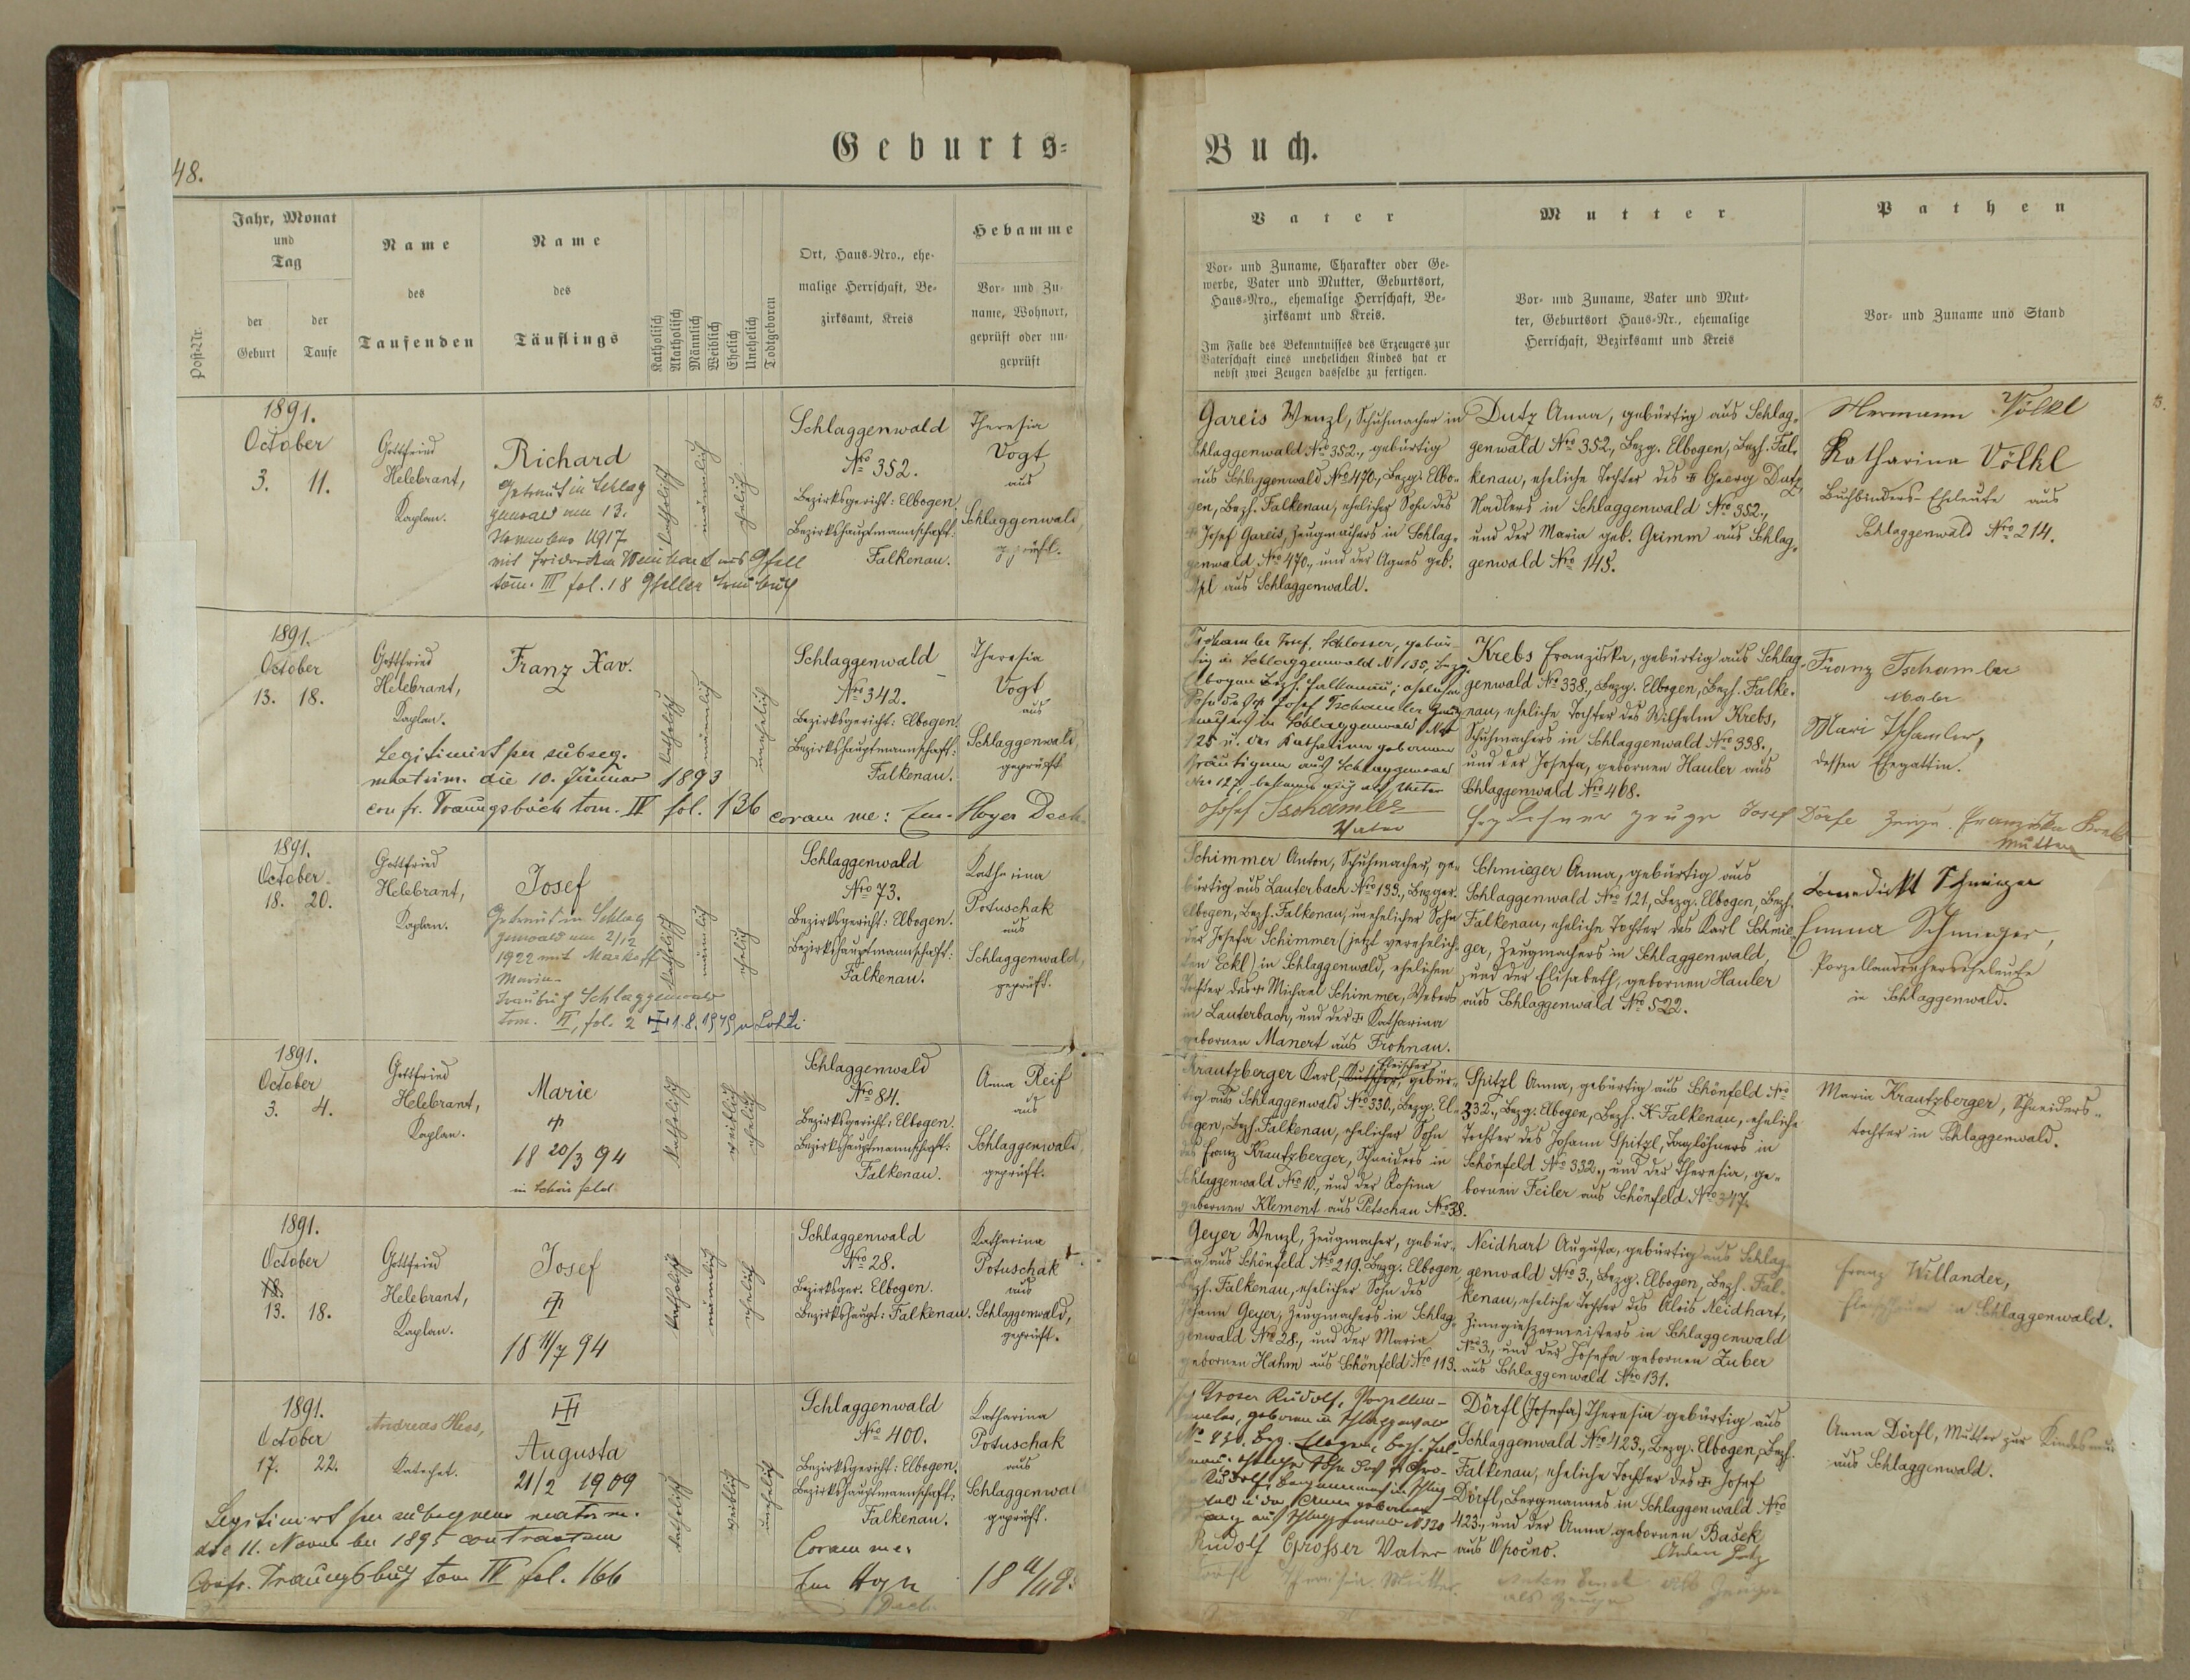 48.
Geburts=
Buch.
Post-Nr.
Jahr, Monat
und
Tag
der
Geburt
der
Taufe
Name
des
Taufenden
Name
des
Täuflings
Katholisch
Akatholisch
Männlich
Weiblich
Ehelich
Unehelich
Todtgeboren
Ort, Haus-Nro., ehe-
malige Herrschaft, Be-
zirksamt, Kreis
Hebamme
Vor- und Zu-
name, Wohnort,
geprüft oder un-
geprüft
Vater
Vor- und Zuname, Charakter oder Ge-
werbe, Vater und Mutter, Geburtsort,
Haus-Nro., ehemalige Herrschaft, Be-
zirksamt und Kreis.
Im Falle des Bekenntnisses des Erzeugers zur
Vaterschaft eines unehelichen Kindes hat er
nebst zwei Zeugen dasselbe zu fertigen.
Mutter
Vor- und Zuname, Vater und Mut-
ter, Geburtsort Haus-Nr., ehemalige
Herrschaft, Bezirksamt und Kreis
Pathen
Vor- und Zuname und Stand
1891.
October
3. 11.
Gottfried
Helebrant,
Kaplan.
Richard
Getraut in Schlag
genwald am 13.
November 1917
tom. III fol. 18
katholisch
männlich
ehelich
Schlaggenwald
Nro 352.
Bezirksgericht: Elbogen.
Bezirkshauptmannschaft:
Falkenau.
Theresia
Vogt
aus
Schlaggenwald,
geprüft.
Gareis Wenzl, Schuhmacher in
Schlaggenwald Nro 352., gebürtig
aus Schlaggenwald Nro 470., Bezg. Elbo-
gen, Bezh. Falkenau, ehelicher Sohn des
Josef Gareis, Zeugmachers in Schlag-
genwald Nro 470., und der Agnes geb.
aus Schlaggenwald.
Dutz Anna, gebürtig aus Schlag-
genwald Nro 352., Bezg. Elbogen, Bezh. Fal-
kenau, eheliche Tochter des Georg Dutz,
Nadlers in Schlaggenwald Nro 352.,
und der Maria geb. Grimm aus Schlag-
genwald Nro 145.
Hermann Völkl
Katharina Völkl
Buchbinders-Eheleute aus
Schlaggenwald Nro 214.
1891.
October
13. 18.
Gottfried
Helebrant,
Kaplan.
Franz Xav.
Legitimirt per subseq.
matrim. die 10. Jänner 1893
Traungsbuch tom. IV fol. 136 coram me: Em. Hoyer Dech.
katholisch
männlich
unehelich
Schlaggenwald
Nro 342.
Bezirksgericht: Elbogen.
Bezirkshauptmannschaft:
Falkenau.
Theresia
Vogt
aus
Schlaggenwald,
geprüft
Tschamler Josef, Schlosser, gebür-
tig in Schlaggenwald N 135, Bezg.
Elbogen Bezh. Falkenau, ehelicher
Josef Tschamler
Vater
Krebs Franziska, gebürtig aus Schlag-
genwald Nro 338., Bezg. Elbogen, Bezh. Falke-
nau, eheliche Tochter des Wilhelm Krebs,
Schuhmachers in Schlaggenwald Nro 338.,
und der Josefa, gebornen Hauler aus
Schlaggenwald Nro 468.
Zeuge Josef Dörfl Zeuge. Franziska Krebs
Mutter
Franz Tschamler
Maler
Mari Tschamler,
dessen Ehegattin.
1891.
October.
18. 20.
Gottfried
Helebrant,
Kaplan.
Josef
Getraut in Schlag
genwald am 2/12
1922 mit
Maria
Schlaggenwald
tom. VI, fol. 2
katholisch
männlich
ehelich
Schlaggenwald
Nro 73.
Bezirksgericht: Elbogen.
Bezirkshauptmannschaft:
Falkenau.
Katharina
Potuschak
aus
Schlaggenwald,
geprüft.
Schimmer Anton, Schuhmacher, ge-
bürtig aus Lauterbach Nro 133., Bezger.
Elbogen, Bezh. Falkenau, unehelicher Sohn
der Josefa Schimmer (jetzt verehelich-
ten Eckl) in Schlaggenwald, ehelichen
Tochter des Michael Schimmer, Webers
in Lauterbach, und der Katharina
gebornen Manert aus Frohnau.
Schmieger Anna, gebürtig aus
Schlaggenwald Nro 121., Bezg. Elbogen, Bezh.
Falkenau, eheliche Tochter des Karl Schmie-
ger, Zeugmachers in Schlaggenwald,
und der Elisabeth, gebornen Hauler
aus Schlaggenwald Nro 522.
Benedickt Schmieger
Emma Schmieger,
Porzellandreherseheleute
in Schlaggenwald.
1891.
October
3. 4.
Gottfried
Helebrant,
Kaplan.
Marie
18 20/3 94
in Schönfeld
katholisch
weiblich
ehelich
Schlaggenwald
Nro 84.
Bezirksgericht: Elbogen.
Bezirkshauptmannschaft:
Falkenau.
Anna Reif
aus
Schlaggenwald,
geprüft.
Krautzberger Karl, Fleischer, gebür-
tig aus Schlaggenwald Nro 330., Bezg. El-
bogen, Bezh. Falkenau, ehelicher Sohn
des Franz Krautzberger, Schneiders in
Schlaggenwald Nro 10., und der Rosina
gebornen Klement aus Petschau Nro 38.
Spitzl Anna, gebürtig aus Schönfeld Nro
332., Bezg. Elbogen, Bezh. Falkenau, eheliche
Tochter des Johann Spitzl, Taglöhners in
Schönfeld Nro 332., und der Theresia, ge-
bornen Feiler aus Schönfeld Nro 347.
Maria Krautzberger, Schneiders-
tochter in Schlaggenwald.
1891.
October
13. 18.
Gottfried
Helebrant,
Kaplan.
Josef
18 11/7 94
katholisch
männlich
ehelich
Schlaggenwald
Nro 28.
Bezirksger. Elbogen.
Bezirkshaupt: Falkenau.
Katharina
Potuschak
aus
Schlaggenwald,
geprüft.
Geyer Wenzl, Zeugmacher, gebür-
tig aus Schönfeld Nro 219. Bezg. Elbogen,
Bezh. Falkenau, ehelicher Sohn des
Johann Geyer, Zeugmachers in Schlag-
genwald Nro 28., und der Maria
gebornen Hahm aus Schönfeld Nro 113.
Neidhart Augusta, gebürtig aus Schlag-
genwald Nro 3., Bezg. Elbogen, Bezh. Fal-
kenau, eheliche Tochter des Alois Neidhart,
Zinngießermeisters in Schlaggenwald
Nro 3., und der Josefa gebornen Zuber
aus Schlaggenwald Nro 131.
Franz Willander,
in Schlaggenwald.
1891.
October
17. 22.
Andreas Hess,
Katechet.
Augusta
21/2 1909
Legitimirt per subsequens matrim.
die 11. November 1895 contractum
Confr. Trauungsbuch tom IV fol. 166
katholisch
weiblich
unehelich
Schlaggenwald
Nro 400.
Bezirksgericht: Elbogen.
Bezirkshauptmannschaft:
Falkenau.
Coram me:
Dech.
Katharina
Potuschak
aus
Schlaggenwald
geprüft.
Groser Rudolf,
Rudolf Grosser Vater
Theresia Mutter.
Dörfl (Josefa) Theresia gebürtig aus
Schlaggenwald Nro 423., Bezg. Elbogen, Bezh.
Falkenau, eheliche Tochter des Josef
Dörfl, Bergmannes in Schlaggenwald Nro
423., und der Anna gebornen Bašek
aus Opočno.
als Zeuge
als Zeuge
Anna Dörfl, Mutter zur Kindesmu
aus Schlaggenwald.